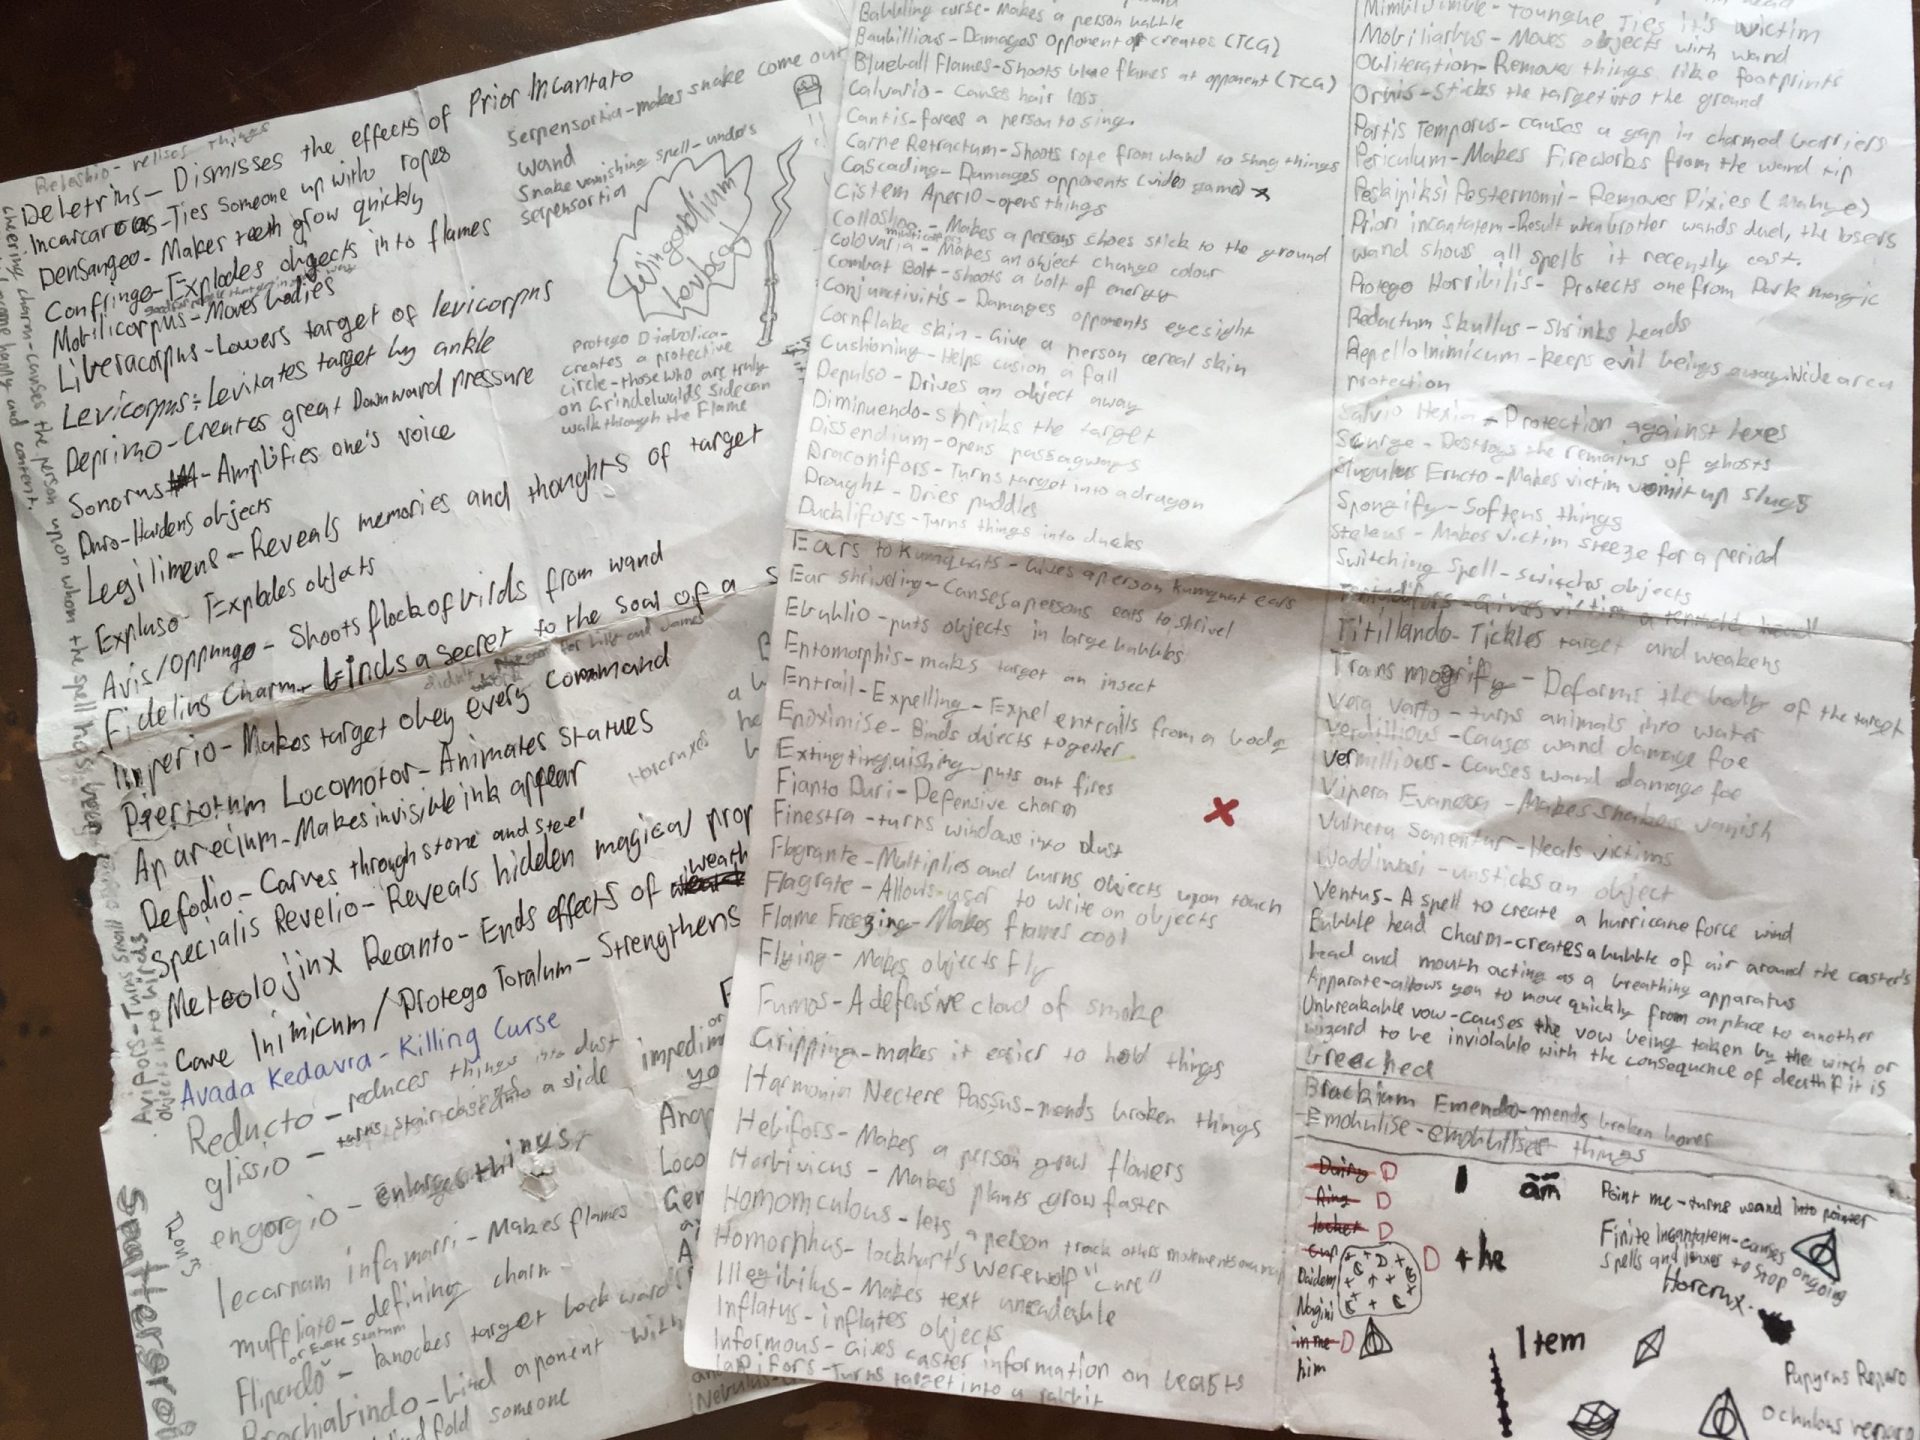 Releshio - relises things
Deletrius - Dismisses the effects of Prior Incantato
Incarcarous - Ties someone up with ropes
Densangeo - Makes teeth grow quickly
Confringo - Explodes objects into flames
Mobilicorpus - Moves bodies
Liberacorpus - Lowers target of levicorpus
Levicorpus - Levitates target by ankle
Deprimo - Creates great Downward pressure
Sonorus - Amplifies one's voice
Duro - Hardens objects
Legilimens - Reveals memories and thoughts of target
Expluso - Explodes objects
Avis/Oppungo - Shoots flock of birds from wand
Fidelius Charm - binds a secret to the soal of a s
didn't work for Lilly and James
Imperio - Makes target obey every command
Piertotum Locomotor - Animates statues
Aparecium - Makes invisible ink appear
Defodio - Carves through stone and steel
Specialis Revelio - Reveals hidden magical prop
Meteolojinx Recanto - Ends effects of weath
Cave Inimicum / Protego Totalum - Strengthens
Avada Kedavra - Killing Curse
Reducto - reduces things into dust
glissio - turns staircase into a slide
engorgio - enlarges things
Iecarnam infamarri - Makes flames
muffliato - defining charm
Flipendo - knockes target backward
Brachiabindo - bind aponent with
blindfold someone
cheering charm - causes the person upon whom the spell has been
become happy and content.
Avifors - Turns small
objects into birds
Ron's
Spattergroit
Serpensortia - makes snake come out
wand
Snake vanishing spell - undo's
serpensortia
Wingardium
Leviosa
Protego Diabolica -
creates a protective
circle - those who are truly
on Grindelwalds side can
walk through the Flame
Horcruxes
impedim
yo
Loco
Babbling curse - Makes a person babble
Baubillious - Damages opponent of creates (TCG)
Bluebell Flames - Shoots blue flames at opponent (TCG)
Calvario - causes hair loss
Cantis - forces a person to sing.
Carpe Retractum - Shoots rope from wand to snag things
Cascading - Damages opponents (video game)
Cistem Aperio - opens things
Colloshoo - Makes a persons shoes stick to the ground
Colovaria - Makes an object change colour
Combat Bolt - shoots a bolt of energy
Conjunctivitis - Damages opponents eyesight
Cornflake skin - Give a person cereal skin
Cushioning - Helps cusion a fall
Depulso - Drives an object away
Diminuendo - shrinks the target
Dissendium - opens passagways
Draconifors - Turns target into a dragon
Drought - Dries puddles
Ducklifors - Turns things into ducks
Ears to Kumquats - Gives a person kumquat ears
Ear shriveling - Causes a persons ears to shrivel
Ebublio - puts objects in large bubbles
Entomorphis - makes target an insect
Entrail - Expelling - Expel entrails from a body
Epoximise - Binds objects together
Extingtinguishing - puts out fires
Fianto Duri - Defensive charm
Finestra - turns windows into dust
Flagrante - Multiplies and burns objects upon touch
Flagrate - Allows user to write on objects
Flame Freezing - Makes flames cool
Flying - Makes objects fly
Fumos - A defensive cloud of smoke
Gripping - makes it easier to hold things
Harmonia Nectere Passus - mends broken things
Hebifors - Makes a person grow flowers
Herbivicus - Makes plants grow faster
Homomculous - lets a person track others movements on a map
Homorphus - lockhart's werewolf "cure"
Illegibilus - Makes text unreadable
Inflatus - inflates objects
Informous - Gives caster information on beasts
Lapifors - Turns target into a rabbit
Mimblewimble - Tounghe Ties it's victim
Mobiliarbus - Moves objects with wand
Obliteration - Removes things like footprints
Orbis - sticks the target into the ground
Partis Temporus - causes a gap in charmed barriers
Periculum - Makes Fireworks from the wand tip
Peskipiksi Pesternomi - Removes Pixies (Maybe)
Priori incantatem - Result when brother wands duel, the losers
wand shows all spells it recently cast.
Protego Horribilis - Protects one from Dark magic
Redactum Skullus - Shrinks heads
Repello Inimicum - keeps evil beings away. Wide area
protection
Salvio Hexia - Protection against hexes
Scurge - Destroys the remains of ghosts
Slugulus Eructo - Makes victim vomit up slugs
Spongify - Softens things
Steleus - Makes victim sneeze for a period
Switching Spell - switches objects
Titillando - Tickles target and weakens
Transmogrify - Deforms the body of the target
Vera Verto - turns animals into water
Verdillious - Causes wand damage foe
Vermillious - Causes wand damage foe
Vipera Evanesca - Makes snakes vanish
Vulnera Sanentur - Heals victims
Waddiwasi - unsticks an object
Ventus - A spell to create a hurricane force wind
Bubble head charm - creates a bubble of air around the caster's
head and mouth acting as a breathing apparatus
Apparate - allows you to move quickly from on place to another
Unbreakable vow - causes the vow being taken by the witch or
wizard to be inviolable with the consequence of death if it is
breached
Brackium Emendo - mends broken bones
Diary D
Ring D
locket D
cup D
Daidem
Nagini
in me D
him
I am
+ he
Item
Point me - turns wand into pointer
Finite Incantatem - causes ongoing
spells and jinxes to stop
Horcrux
Papyrus Reparo